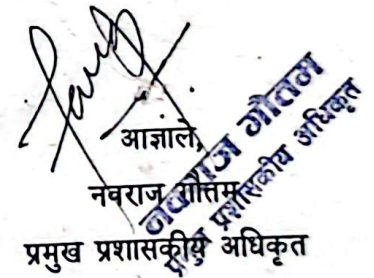 आज्ञाले,
नवराज गौतम
प्रमुख प्रशासकीय अधिकृत
नवराज गौतम
प्रमुख प्रशासकीय अधिकृत